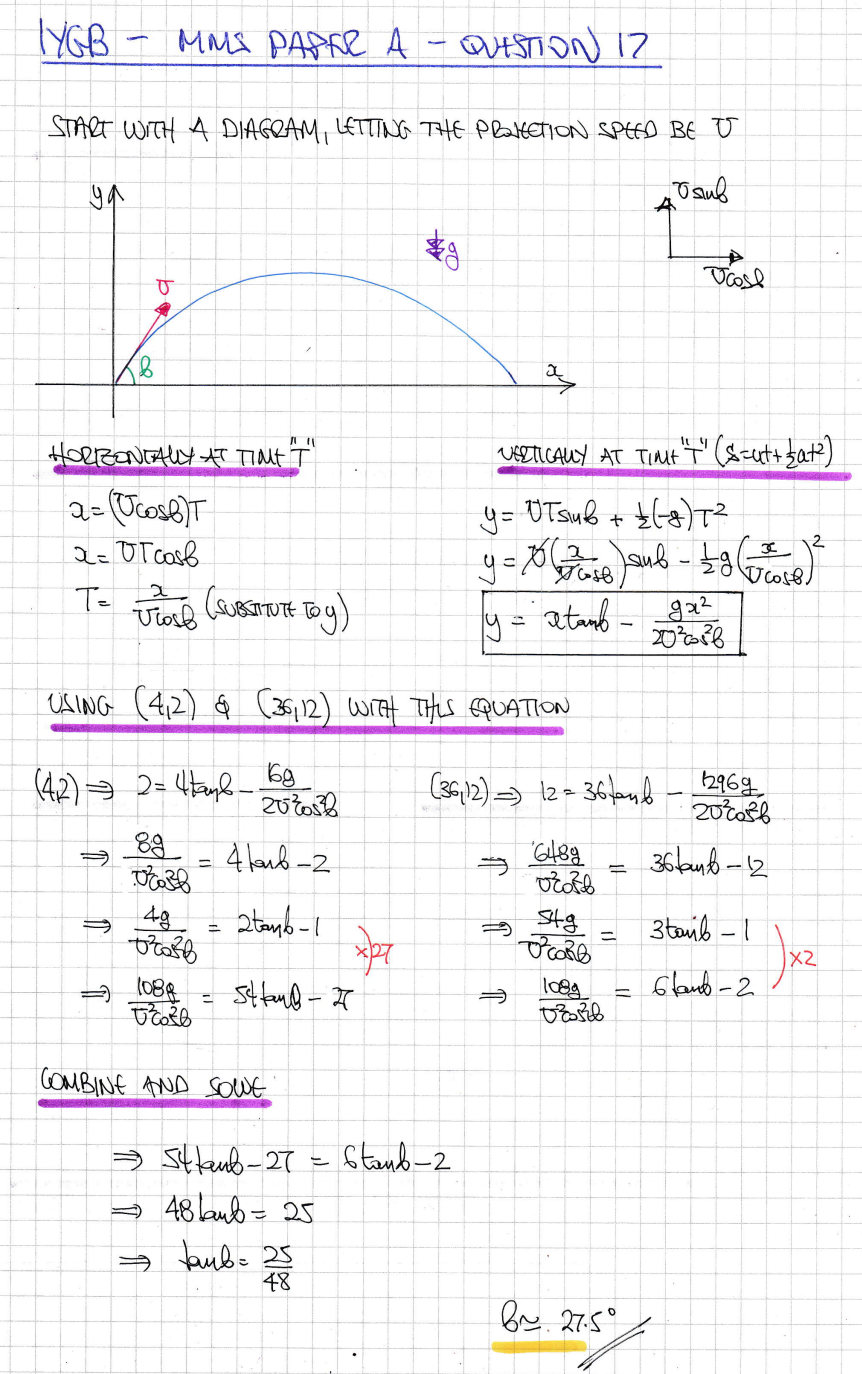 IYGB - MMS PAPER A - QUESTION 17
START WITH A DIAGRAM, LETTING THE PROJECTION SPEED BE U
y
U
θ
g
x
U sinθ
U cosθ
HORIZONTALLY AT TIME "T"
x = (U cosθ)T
x = UT cosθ
T = x/(U cosθ) (SUBSTITUTE TO y)
VERTICALLY AT TIME "T" (s=ut+½at²)
y = UT sinθ + ½(-g)T²
y = U(x/(U cosθ)) sinθ - ½g(x/(U cosθ))²
y = x tanθ - gx²/(2U²cos²θ)
USING (4,2) & (36,12) WITH THIS EQUATION
(4,2) ⇒ 2 = 4tanθ - 16g/(2U²cos²θ)
⇒ 8g/(U²cos²θ) = 4tanθ - 2
⇒ 4g/(U²cos²θ) = 2tanθ - 1
×27
⇒ 108g/(U²cos²θ) = 54tanθ - 27
(36,12) ⇒ 12 = 36tanθ - 1296g/(2U²cos²θ)
⇒ 648g/(U²cos²θ) = 36tanθ - 12
⇒ 54g/(U²cos²θ) = 3tanθ - 1
×2
⇒ 108g/(U²cos²θ) = 6tanθ - 2
COMBINE AND SOLVE
⇒ 54tanθ - 27 = 6tanθ - 2
⇒ 48tanθ = 25
⇒ tanθ = 25/48
θ ≃ 27.5°